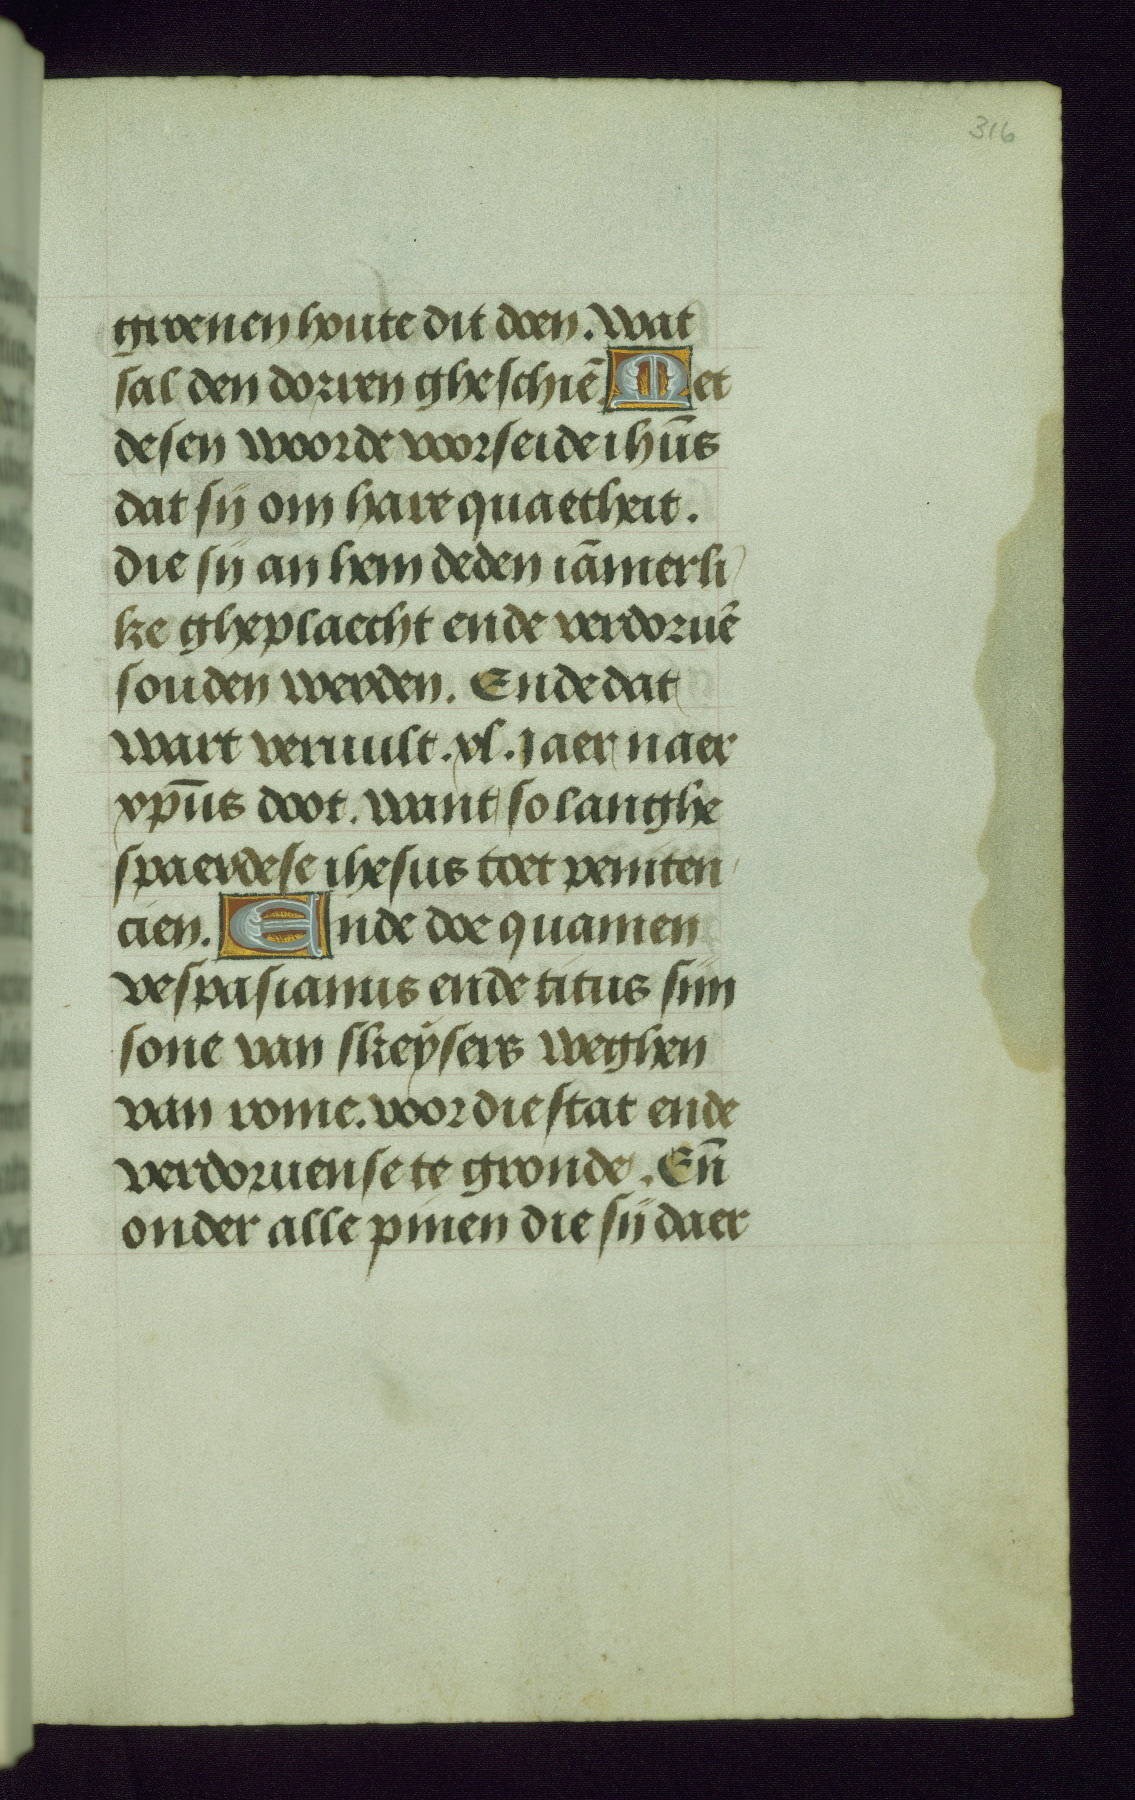 316
groenen houte dit doen. wat
sal den dorren gheschiē. Met
desen woorde voorseide ihūs
dat sij om hare quaetheit.
die sij an hem deden iāmerli
ke gheplaecht ende verdoruē
souden werden. Ende dat
wart veruult. xl. Jaer naer
xpūs doot. want so langhe
spaerdese ihesus toet peniten
cien. Ende doe quamen
vespasianus ende titus sijn
sone van skeysers weghen
van rome. voor die stat ende
verdoruense te gronde. Eñ
onder alle pinen die sij daer